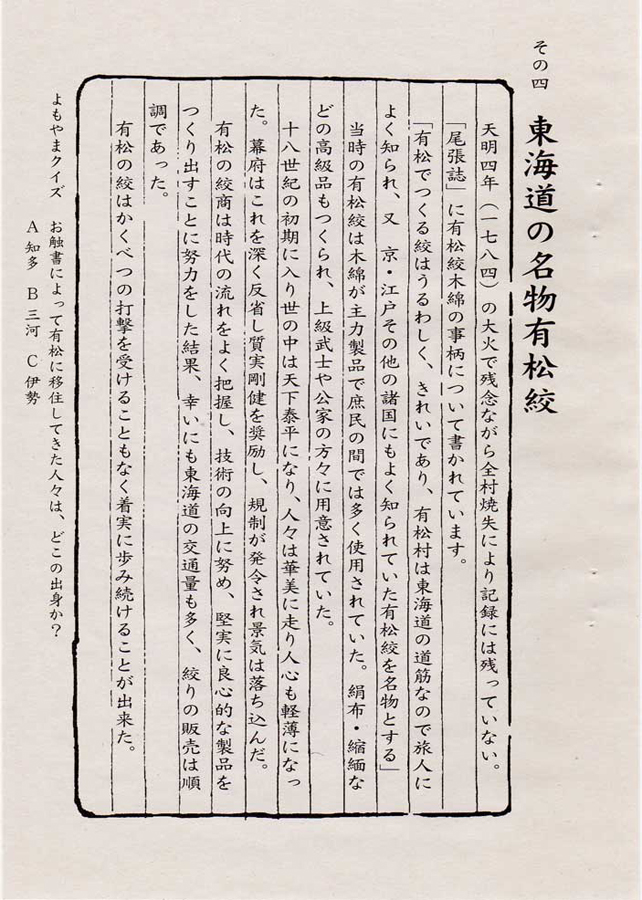 その四　東海道の名物有松絞
天明四年（一七八四）の大火で残念ながら全村焼失により記録には残っていない。
「尾張誌」に有松絞木綿の事柄について書かれています。
「有松でつくる絞はうるわしく、きれいであり、有松村は東海道の道筋なので旅人に
よく知られ、又　京・江戸その他の諸国にもよく知られていた有松絞を名物とする」
当時の有松絞は木綿が主力製品で庶民の間では多く使用されていた。絹布・縮緬な
どの高級品もつくられ、上級武士や公家の方々に用意されていた。
十八世紀の初期に入り世の中は天下泰平になり、人々は華美に走り人心も軽薄になっ
た。幕府はこれを深く反省し質実剛健を奨励し、規制が発令され景気は落ち込んだ。
有松の絞商は時代の流れをよく把握し、技術の向上に努め、堅実に良心的な製品を
つくり出すことに努力をした結果、幸いにも東海道の交通量も多く、絞りの販売は順
調であった。
有松の絞はかくべつの打撃を受けることもなく着実に歩み続けることが出来た。
よもやまクイズ　お触書によって有松に移住してきた人々は、どこの出身か？
A 知多　B 三河　C 伊勢